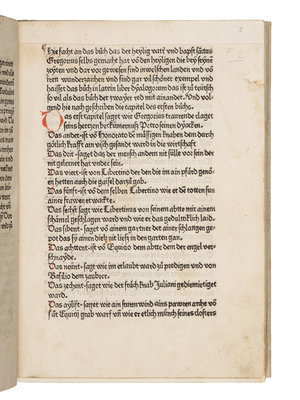 Hie facht an das büch das der heylig vatter vnd bapst sāctus
Gregorius selbs gemacht hat võ den heyligen die bey seynē
zeyten vnd dar vor gewesen sind in welschen landen vnd võ
iren wunderzaichen vnd sind gar vil schöner exempel vnd
haisset das büch in latein liber dyalogorum das ist zü teütsch
so vil als das büch der zwayer red mit ainander. Vnd vol
gend hie nach geschriben die capitel des ersten büchs.
Das erst capitel saget wie Gregorius traurende claget
seins hertzen bekümernuß Petro seinen dyacken.
Das ander ist võ Honorato dē mässigen knaben dem durch
götlich krafft ain visch gesendet ward in die wirtschaft
Das drit saget das der mensch andern nit sülle vor sein der
nit gelernet hat vnder sein.
Das vierd ist von Libertino der den die im ain pfärd genõ
men hetten auch die gaisel darzü gab.
Das fünft ist võ dem selben Libertino wie er dē totten sun
ainer frawen erwackte.
Das sechst sagt wie Libertinus von seinem abbte mit ainem
schämel geschlagen ward vnd wie er das gedultiklich laid.
Das sibent saget võ ainem gartner der ainer schlangen ge
pot das sy ainen dieb nit ließ in den garten gan.
Das achttent ist võ Equicio dem abbte dem der engel ver
schnayde.
Das neünt sagt wie im erlaubt ward zü predigen vnd von
Basilio dem zauberer.
Das zehent saget wie der früch knab Juliani gediemietiget
ward.
Das aylfft saget wie ain sturmwind ains pawren arche võ
sāt Equicij grab warf vnd wie er etlich münch seines closters